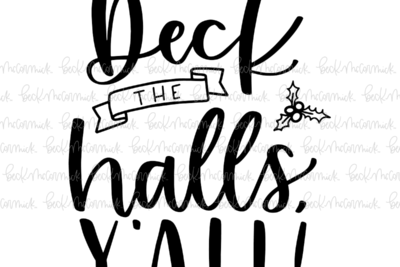 Deck
THE
halls,
Y'ALL!